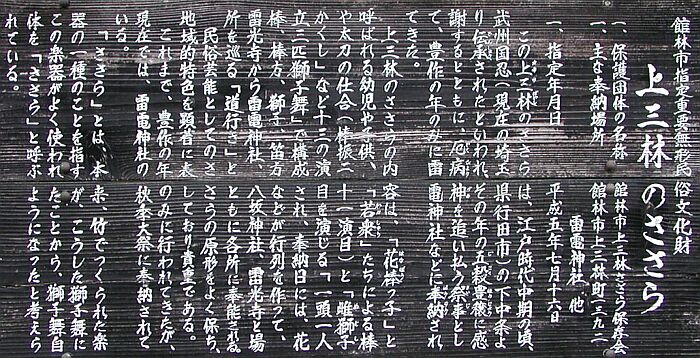 館林市指定重要無形民俗文化財
上三林のささら
一、保護団体の名称　館林市上三林ささら保存会
一、主な奉納場所　館林市上三林町(一三九二)
雷電神社　他
一、指定年月日　平成五年七月十六日
この上三林のささらは、江戸時代中期の頃、
武州国忍(現在の埼玉県行田市)の下中条よ
り伝承されたといわれ、その年の五穀豊穣に感
謝するとともに、厄病神を追い払う祭事とし
て、豊作の年のみに雷電神社などに奉納され
てきた。
上三林のささらの内容は、「花棒っ子」と
呼ばれる幼児や子供、「若衆」たちによる棒
や太刀の仕合(棒振二十一演目)と「雌獅子
かくし」など十三の演目を演じる「一頭一人
立三匹獅子舞」で構成され、奉納日には、花
棒、棒方、獅子、笛方などが行列を作って、
雷光寺から雷電神社、八坂神社、雷光寺と場
所を巡る「道行き」とともに各所に奉能される。
民俗芸能としてのささらの原形をよく保ち、
地域的特色を顕著に表しており貴重である。
これまで、豊作の年のみに行われてきたが、
現在では、雷電神社の秋季大祭に奉納されて
いる。
「ささら」とは、本来、竹でつくられた楽
器の一種のことを指すが、こうした獅子舞に
この楽器がよく使われたことから、獅子舞自
体を「ささら」と呼ぶようになったと考えら
れている。